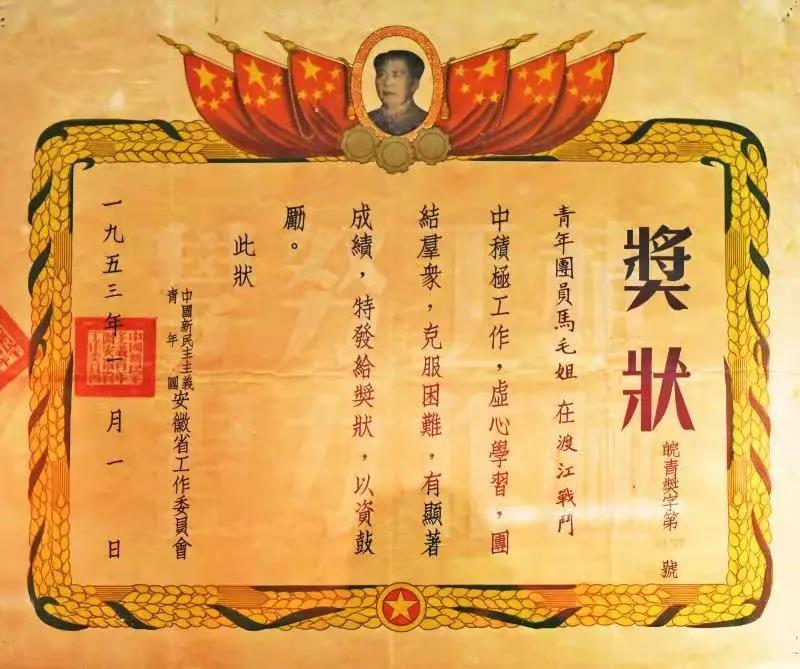 獎狀
皖青獎字第 號
青年團員馬毛姐在渡江戰鬥
中積極工作，虛心學習，團
結羣衆，克服困難，有顯著
成績，特發給獎狀，以資鼓
勵。
此狀
中國新民主主義
青年團
安徽省工作委員會
一九五三年一月一日